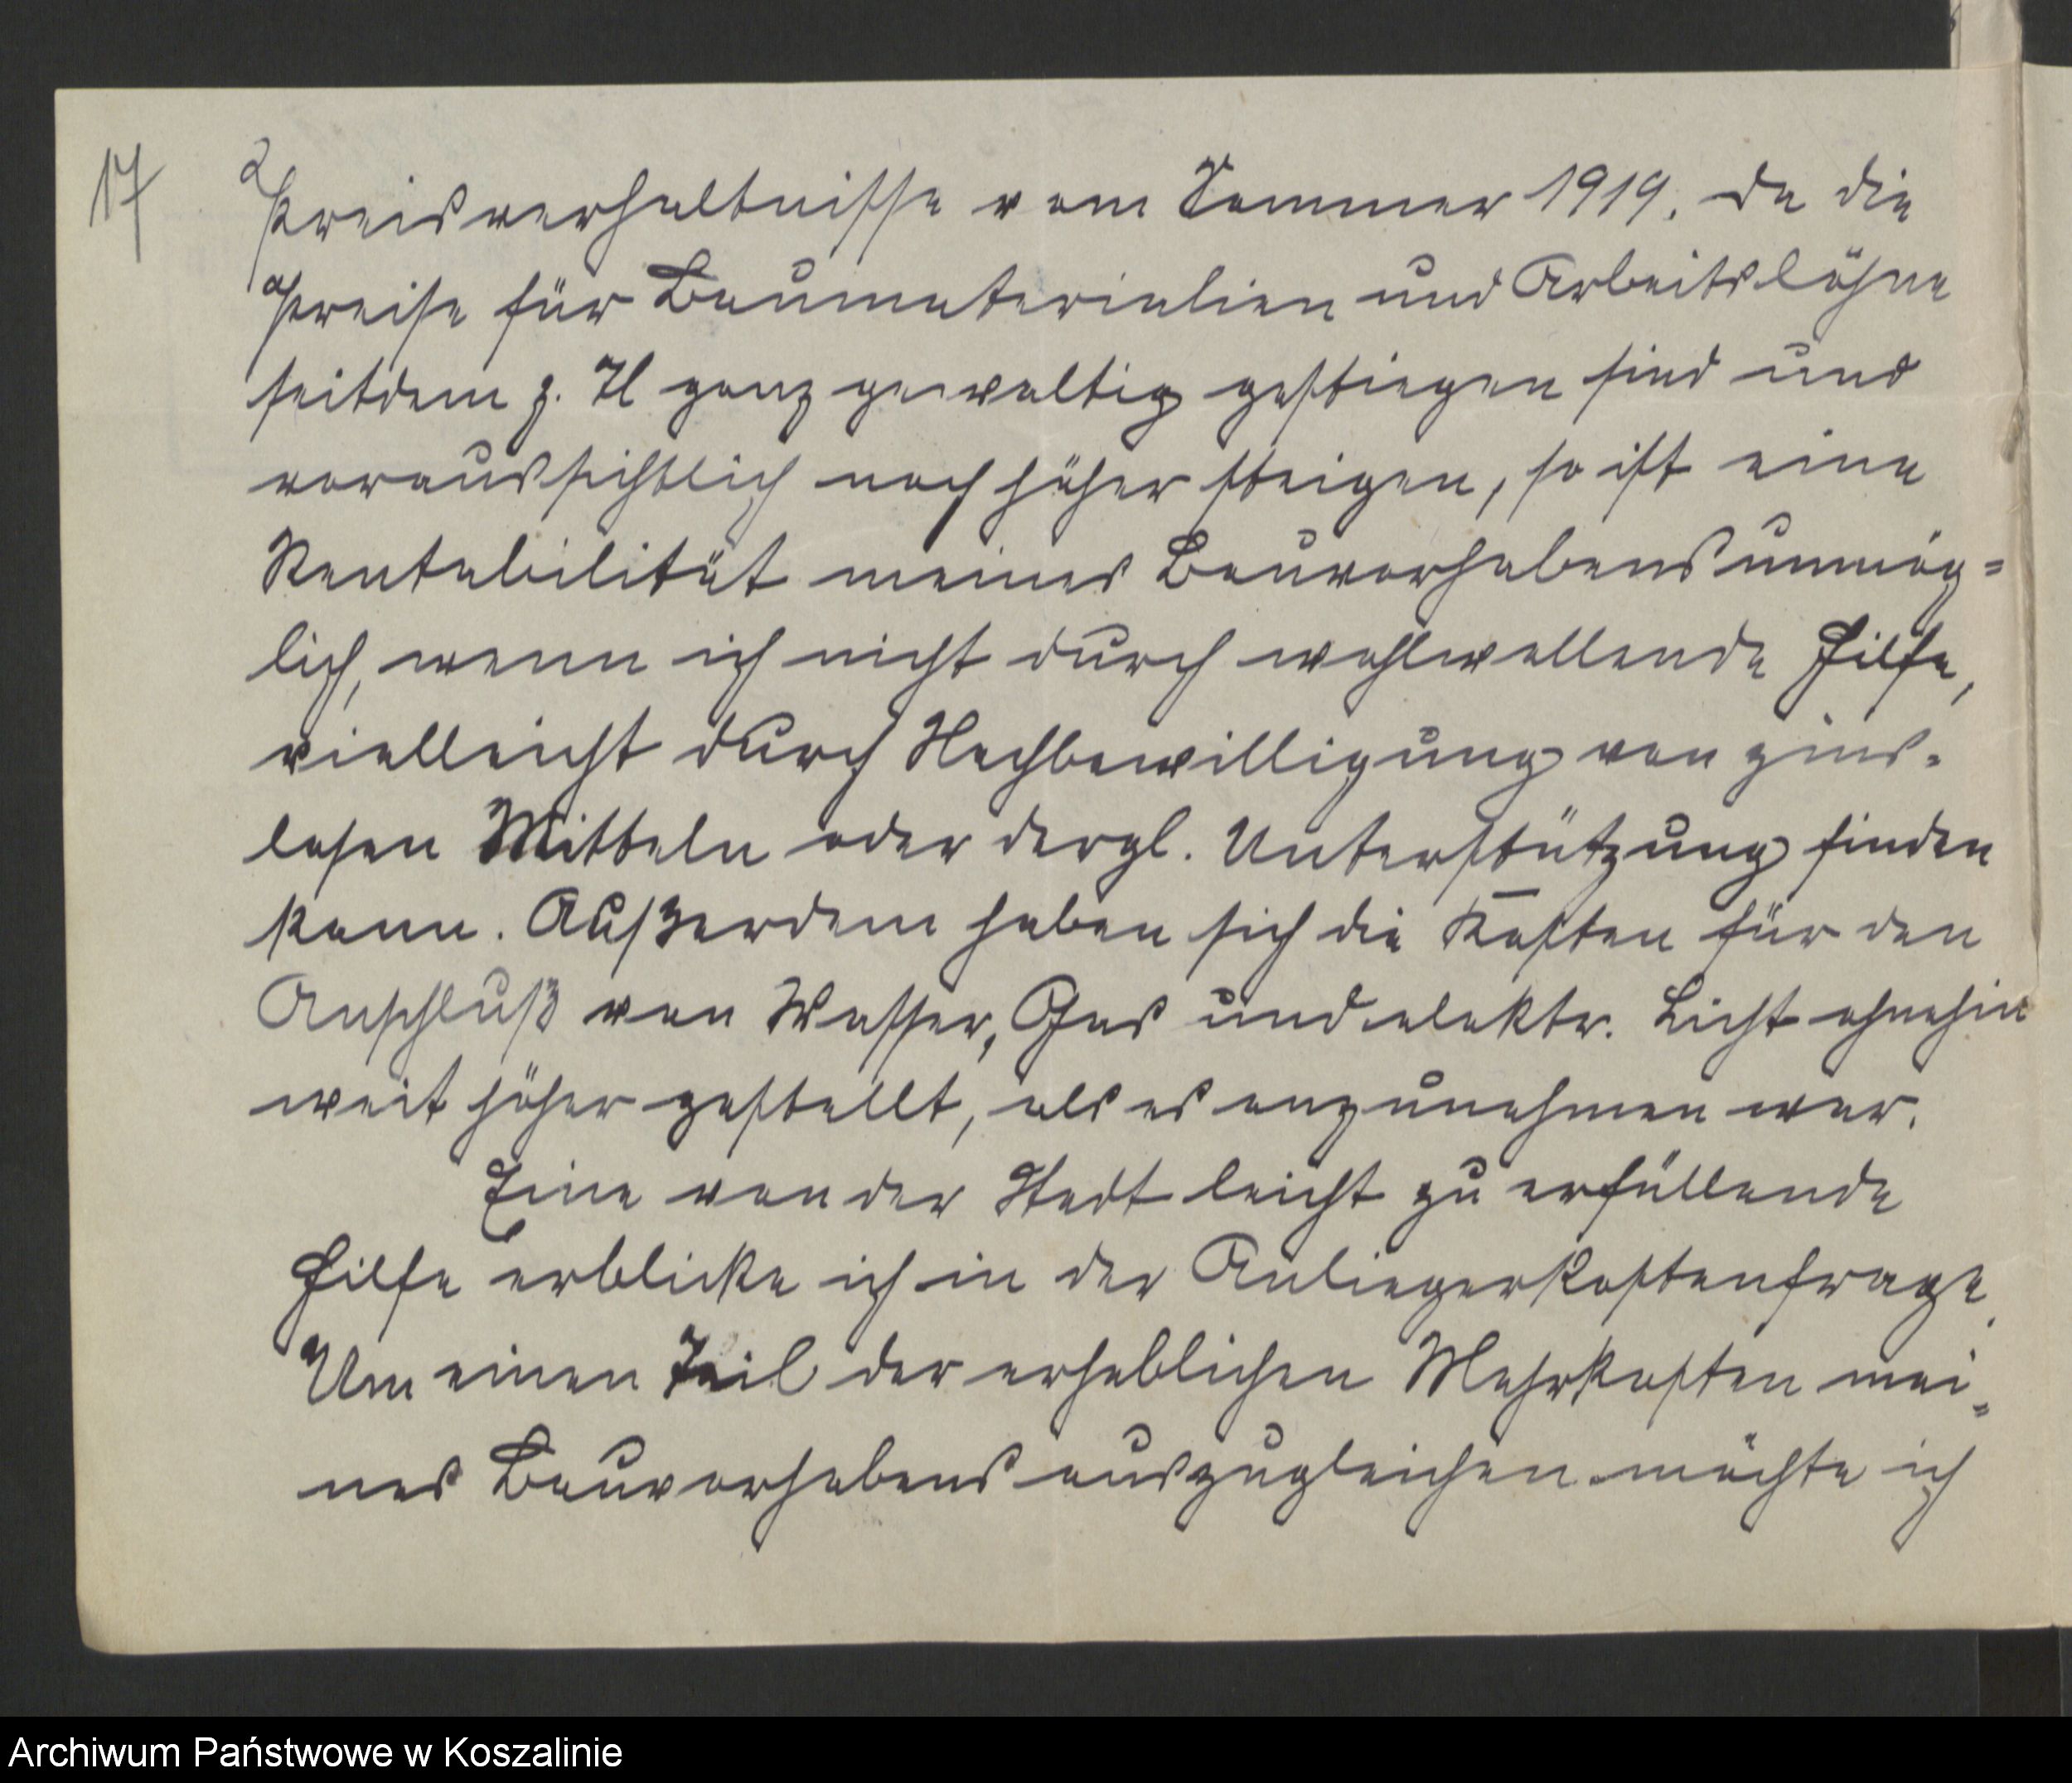 17
Preisverhaltnisse vom Sommer 1919. Da die
Preise für Baumaterialien und Arbeitslöhne
seitdem z. Tl ganz gewaltig gestiegen sind und
voraussichtlich noch höher steigen, so ist eine
Rentabilität meines Bauvorhabens unmög=
lich, wenn ich nicht durch wohlwollende Hilfe,
vielleicht durch Nachbewilligung von zins-
losen Mitteln oder dergl. Unterstützung finden
kann. Außerdem haben sich die Kosten für den
Anschluß von Wasser, Gas und elektr. Licht ohnehin
weit höher gestellt, als es anzunehmen war.
Eine von der Stadt leicht zu erfüllende
Hilfe erblicke ich in der Anliegerkostenfrage.
Um einen Teil der erheblichen Mehrkosten mei=
nes Bauvorhabens auszugleichen möchte ich
Archiwum Państwowe w Koszalinie